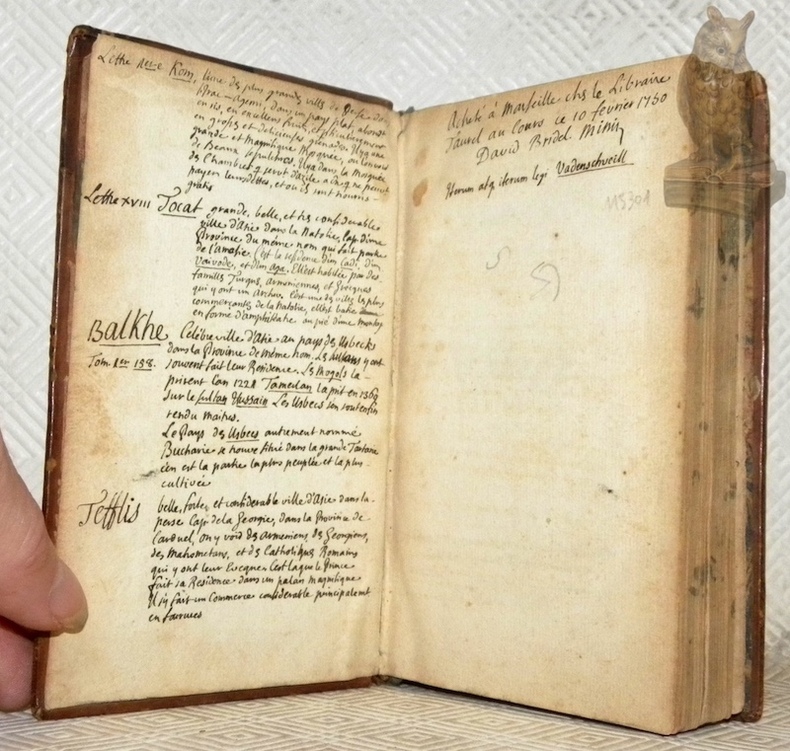 Lettre 1ere Kom, l'une des plus grandes villes de Perse dans
l'Irac-Agemi, dans un pays plat, abondant
en ris, en excellens fruits, particulierement
en grosses et delicieuses grenades. Il y a une
grande et magnifique Mosquée, où l'on voit
de Beaux sepulchres. Il y a dans la Mosquée
des Chambres qui servent d'azile à ceux qui ne peuvent
payer leurs dettes, et où ils sont nourris
gratis
Lettre XVIII Tocat grande, belle, et tres considerable
ville d'Asie dans la Natolie, Cap. d'une
Province du méme nom qui fait partie
de l'Amasie. C'est la residence d'un Cadi, d'un
Vaivode, et d'un Aga. Elle est habitée par des
familles Turques, Armeniennes, et Grecques
qui y ont un Archev. C'est une des villes les plus
commerçantes de la Natolie, elle est batie
en forme d'amphiteatre au pié d'une montag
Balkhe Célébre ville d'Asie au pays des Usbecks
dans la Province de méme nom. Les y ont
Tom. 1er 138. souvent fait leur Residence. Les Mogols la
prirent l'an 1221 Tamerlan la prit en 1369
sur le sultan Hussain Les Usbecs s'en sont enfin
rendu maitres.
Le Pays des Usbecs autrement nommé
Bucharie se trouve situé dans la grande Tartarie
c'en est la partie la plus peuplée et la plus
cultivée
Tefflis belle, forte, et considerable ville d'Asie dans la
perse Cap. de la Georgie, dans la Province de
Carduel, on y void des Armeniens, des Georgiens,
des Mahometans, et des Catholiques Romains
qui y ont leur Evesque. C'est la que le Prince
fait sa Residence dans un palais magnifique
Il s'y fait un Commerce considerable principalemt
en fourrures
Acheté à Marseille chés le Libraire
Taurel au Cours ce 10 fevrier 1750
David Bridel Minis
Iterum atq iterum legi Vadenschweill
115301